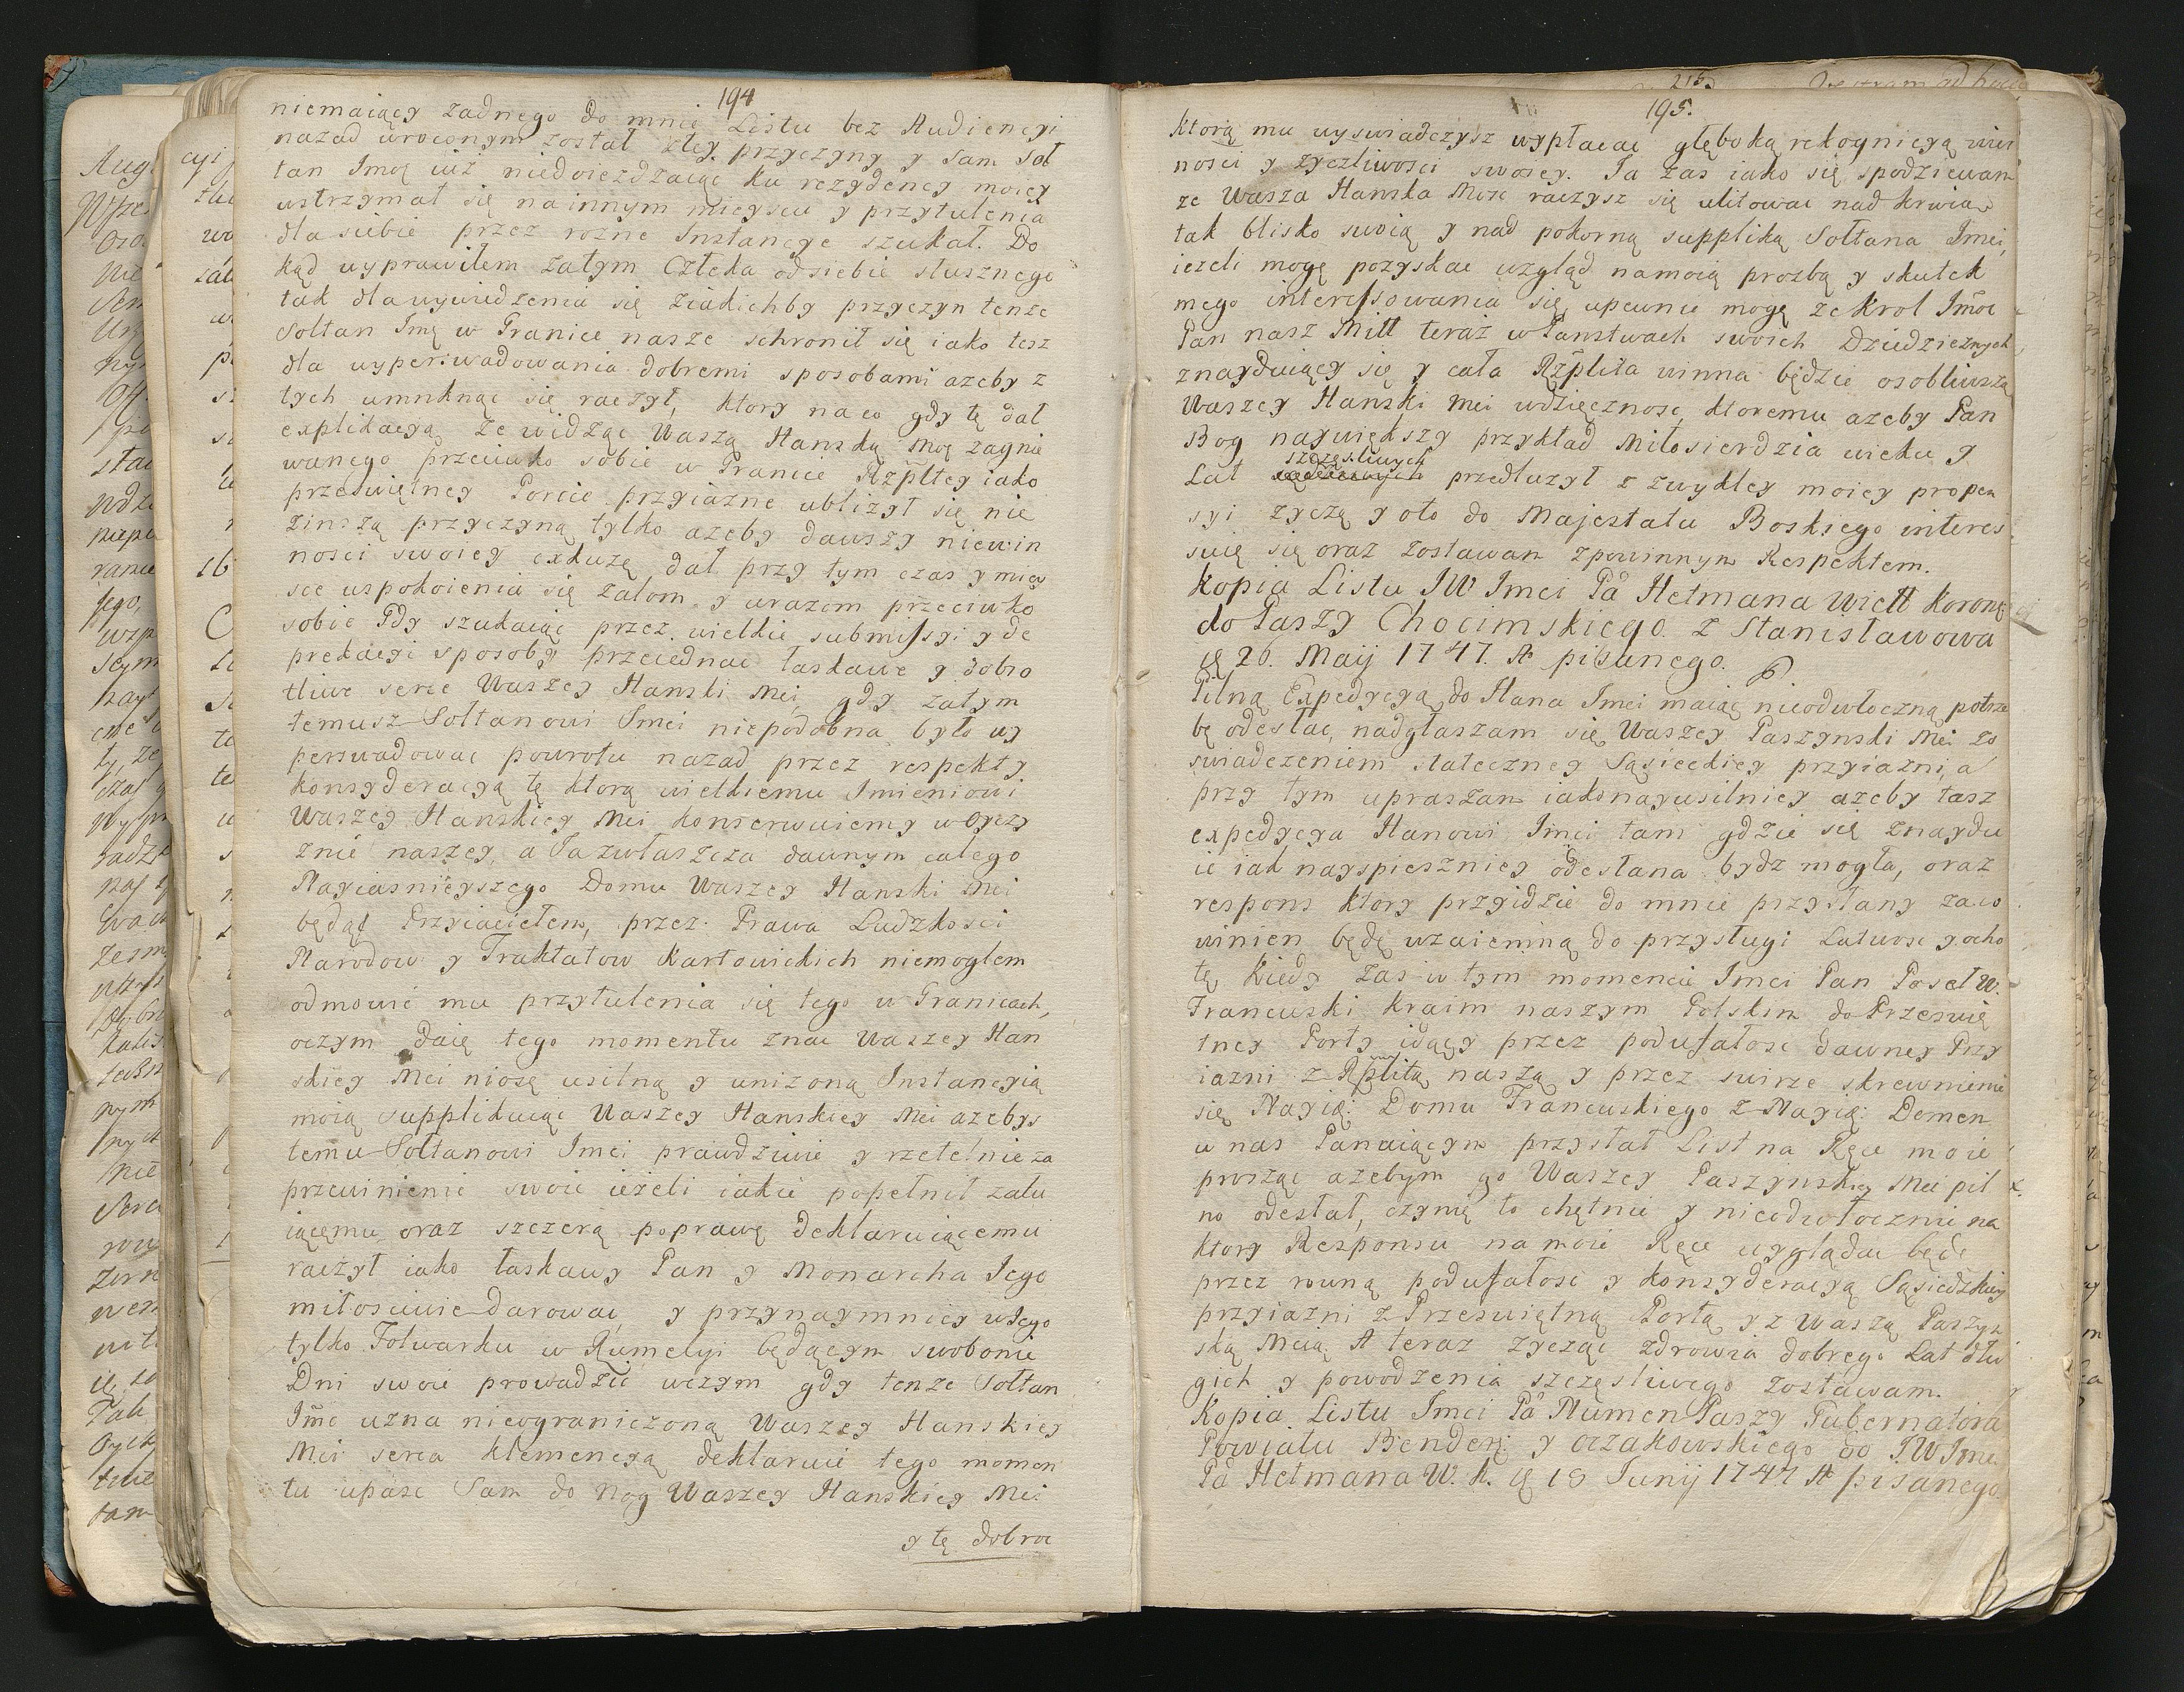 194
niemaiący zadnego do mnie Listu bez Audiencyi
nazad wroconym został z tey przyczyny y Sam Soł
tan Jmę iuż niedoiezdzaiąc ku rezydencyi moiey
ustrzymał się na innym mieyscu y przytulenia
dla siebie przez rozne Instancye szukał. Do
kąd wyprawiłem zatym Człeka od siebie słusznego
tak dla wywiedzenia się z iakichby przyczyn tenze
Sołtan Jmę w Granice nasze schronił się iako tesz
dla wyperswadowania dobremi sposobami azeby z
tych umnknąc się raczył, ktory na co gdy tę dał
explikacyą ze widząc Waszą Hanską Mę zagnie
wanego przeciwko sobie w Granice Rzpltey iako
przeswiętney Porcie przyiazne ublizył się nie
z inszą przyczyną tylko azeby dawszy niewin
nosci swoiey exkuzę dał przy tym czas y miey
sce uspokoienia się zalom y urazom przeciwko
sobie Gdy szukaiąc przez wielkie submissyi y de
prekacyi sposoby przeiednac łaskawe y dobro
tliwe serce Waszey Hanski Mei, gdy zatym
temusz Sołtanowi Jmei niepodobna było wy
perswadowac powrotu nazad przez respekty
konsyderacyą tę ktorą wielkiemu Jmieniowi
Waszey Hanskiey Mei konserwuiemy w Oyczy
znie naszey, a Ja zwłaszcza dawnym całego
Nayiasnieyszego Domu Waszey Hanski Mei
będąc Przyiacielem, przez Prawa Ludzkosci
Narodow y Traktatow Karłowickich niemogłem
odmowić mu przytulenia się tego w Granicach,
oczym daię tego momentu znac Waszey Han
skiey Mei niosę usilną y unizoną Instancyią
moią supplikuiąc Waszey Hanskiey Mei azebys
temu Sołtanowi Jmei prawdziwie y rzetelnie za
przewinienie swoie iezeli iakie popełnił zału
iącęmu oraz szczerą poprawę deklaruiącemu
raczył iako łaskawy Pan y Monarcha Jego
miłosciwie darowac, y przynaymniey w Jego
tylko Folwarku w Rumelyi będącym swobonie
Dni swoie prowadzić wczym gdy tenze Sołtan
Jme uzna nieograniczoną Waszey Hanskiey
Mei serca klemencyą deklaruie tego momen
tu upasc Sam do Nog Waszey Hanskiey Mei
y tę dobroc
195.
ktorą mu wyswiadczysz wypłacac głęboką rekognicyą wier
nosci y zyczliwosci swoiey. Ja zas iako się spodziewam
ze Wasza Hanska Mosc raczysz się ulitowac nad krwią
tak blisko swoią y nad pokorną suppliką Sołtana Jmei,
iezeli mogę pozyskac wzgląd na moią prozbą y skutek
mego interessowania się, upewnic mogę ze Krol Jmśc
Pan nasz Mill teraz w Panstwach swoich Dziedzicznych
znayduiący się y cała Rzplita winna będzie osobliwszą
Waszey Hanski Mei wdzięcznosc, ktoremu azeby Pan
Bog naywiększy przykład Miłosierdzia wieku y
szczęsliwych
Lat przedłuzył z zwykley moiey propen
syi zyczą y oto do Majestatu Boskiego interes
suię się oraz zostawam z powinnym Respektem.
Kopia Listu JW Jmci Pa Hetmana Wiell Koronę
do Paszy Chocimskiego z Stanisławowa
ię 26. Maij 1747. A pisanego.
Pilną Expedycyą do Hana Jmei maiąc nieodwłoczną potrze
bę odesłac, nadgłaszam się Waszey Paszynski Mei zo
swiadczeniem stateczney Sąsieckiey przyiazni, a
przy tym upraszam iakonayusilniey ażeby tasz
expedycya Hanowi Jmei tam gdzie się znaydu
ie iak nayspieszniey odesłana bydz mogła, oraz
respons ktory przyidzie do mnie przysłany za co
winien będę wzaiemną do przysługi Łatwosc y ocho
tę Kiedy zas w tym momencie Jmci Pan Poseł W.
Francuski kraim naszym Polskim do Przeswię
tney Porty idący przez podufałosc dawney Przy
iazni z Rzplitą naszą y przez swirze skrewnienie
się Nayią: Domu Francuskiego z Nayią: Domem
u nas Panuiącym przysłał List na Ręce moie
prosząc azebym go Waszey Paszynskiey Mei pil
no odesłał, czynię to chętnie y nieodwłocznie na
ktory Responsu na moie Ręce wyglądac będę
przez rowną podufałosc y konsyderacyą Sąsiedzkiey
przyiazni z Przeswiętną Portą y z Waszą Paszyn
ską Mcią A teraz zycząc zdrowia dobrego Lat dłu
gich y powodzenia szczęsliwego zostawam.
Kopia Listu Jmci Pa Numen Paszy Gubernatora
Powiatu Benderę y Oczakowskiego do JW Jmci
Pa Hetmana W. K. ię 18 Junij 1747 A pisanego